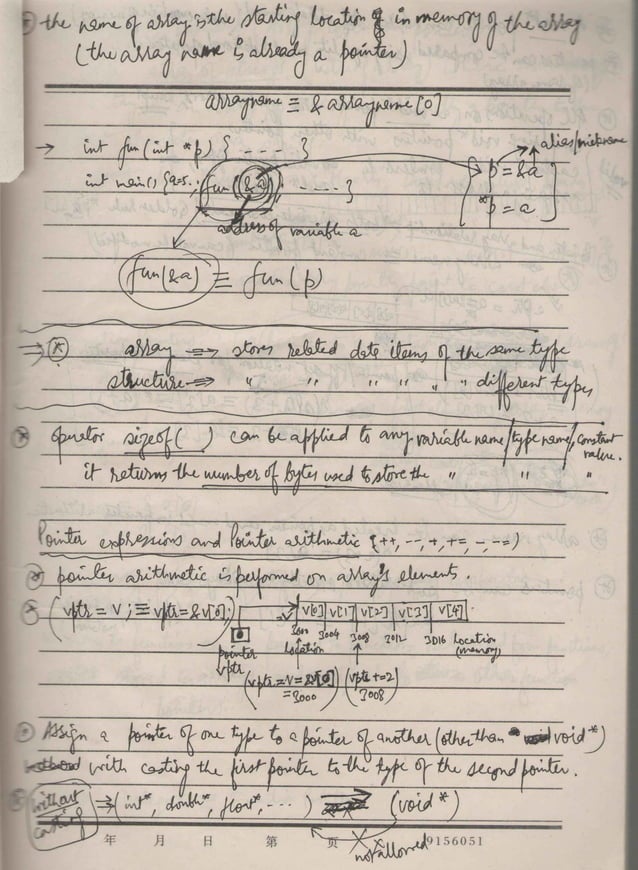 the name of array is the starting location in memory of the array
(the array name is already a pointer)
arrayname ≡ & arrayname[0]
→ int fun(int *p) { - - - - }
int main() {a=5.; fun(&a); - - - - }
address of variable a
alias/nickname
p = &a
*p = a
fun(&a) ≡ fun(p)
array ⇒ stores related date items of the same type
structure ⇒ " " " " " " different types
operator sizeof( ) can be applied to any variable name/type name/constant value.
it returns the number of bytes used to store the " " "
Pointer expressions and Pointer arithmetic {++, --, +, +=, -, -=}
pointer arithmetic is performed on array's elements.
(vptr = v ; ≡ vptr = &v[0];) v[0] v[1] v[2] v[3] v[4]
3000 3004 3008 3012 3016 location (memory)
pointer vptr
location
(vptr = v = &v[0] = 3000) (vptr += 2 3008)
Assign a pointer of one type to a pointer of another (other than void*)
with casting the first pointer to the type of the second pointer.
without casting ⇒ (int*, double*, float*, - - -) ⇒ (void*)
not allowed
年 月 日 第 页 9156051